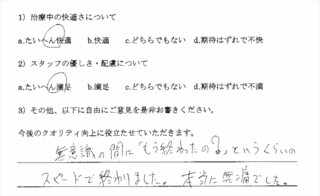 1) 治療中の快適さについて
a.たいへん快適 b.快適 c.どちらでもない d.期待はずれで不快
2) スタッフの優しさ・配慮について
a.たいへん満足 b.満足 c.どちらでもない d.期待はずれで不満
3) その他、以下に自由にご意見を是非お書きください。
今後のクオリティ向上に役立たせていただきます。
無意識の間に「もう終わったの?」というくらいの
スピードで終わりました。本当に無痛でした。